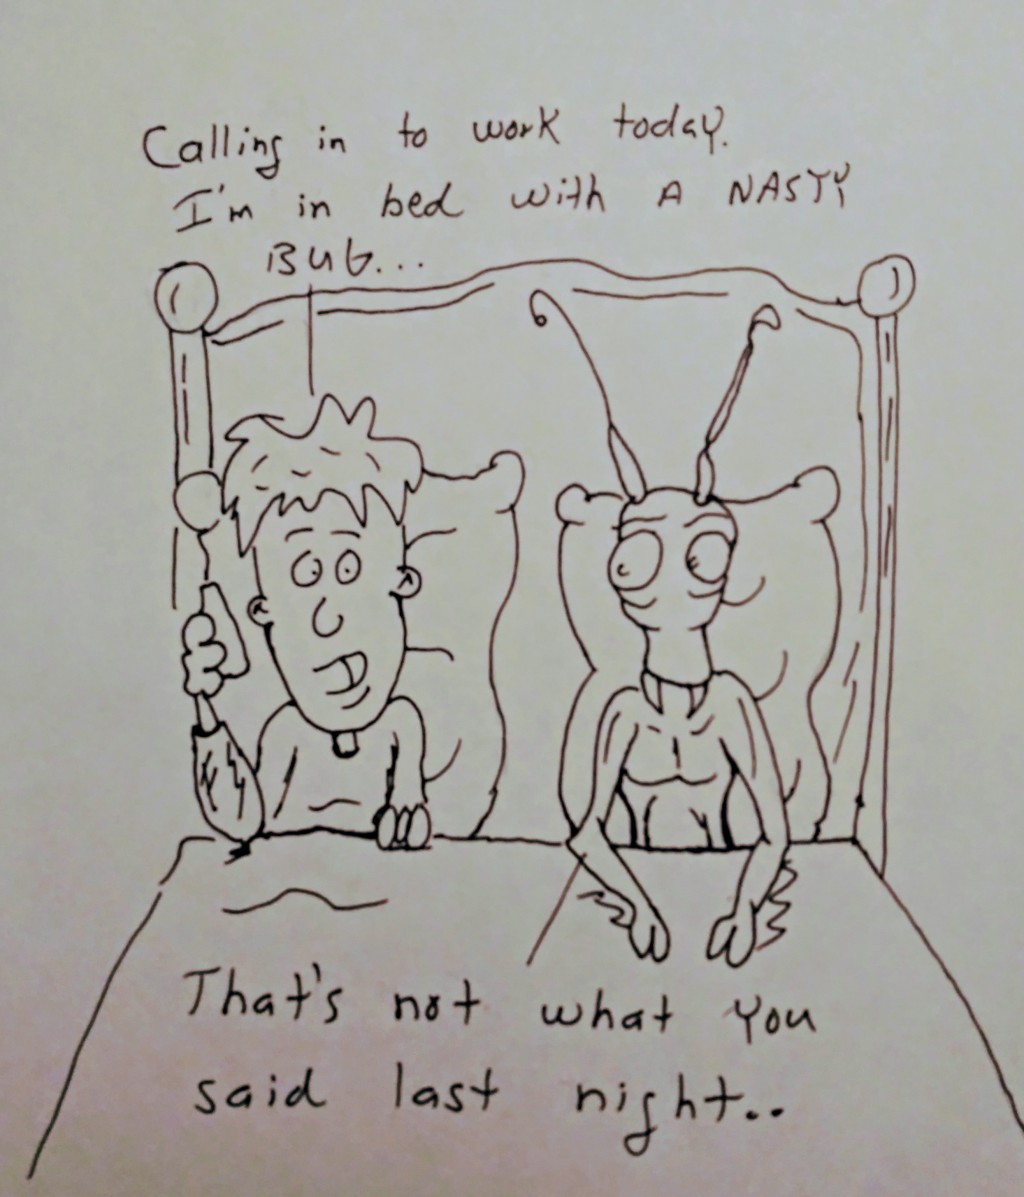 Calling in to work today.
I'm in bed with A NASTY
BUG...
That's not what you
said last night..